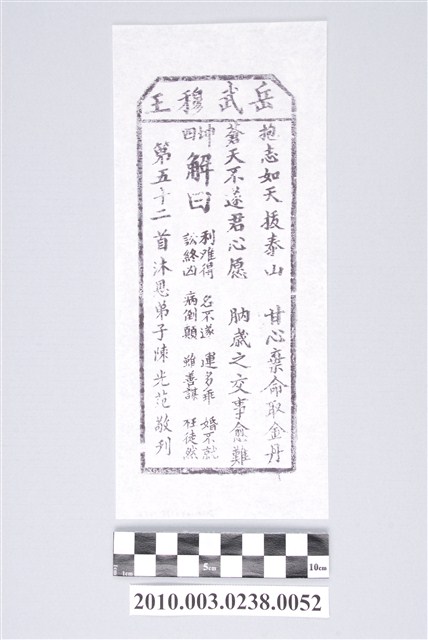 岳武穆王
抱志如天拔泰山 甘心棄命取金丹
蒼天不遂君心愿 朒歲之交事愈難
坤四 解曰 利难得 名不遂 運多乖 婚不就
訟終凶 病倒顛 雖善謀 枉徒然
第五十二首沐恩弟子陳光范敬刊
1cm 5cm 10cm
2010.003.0238.0052